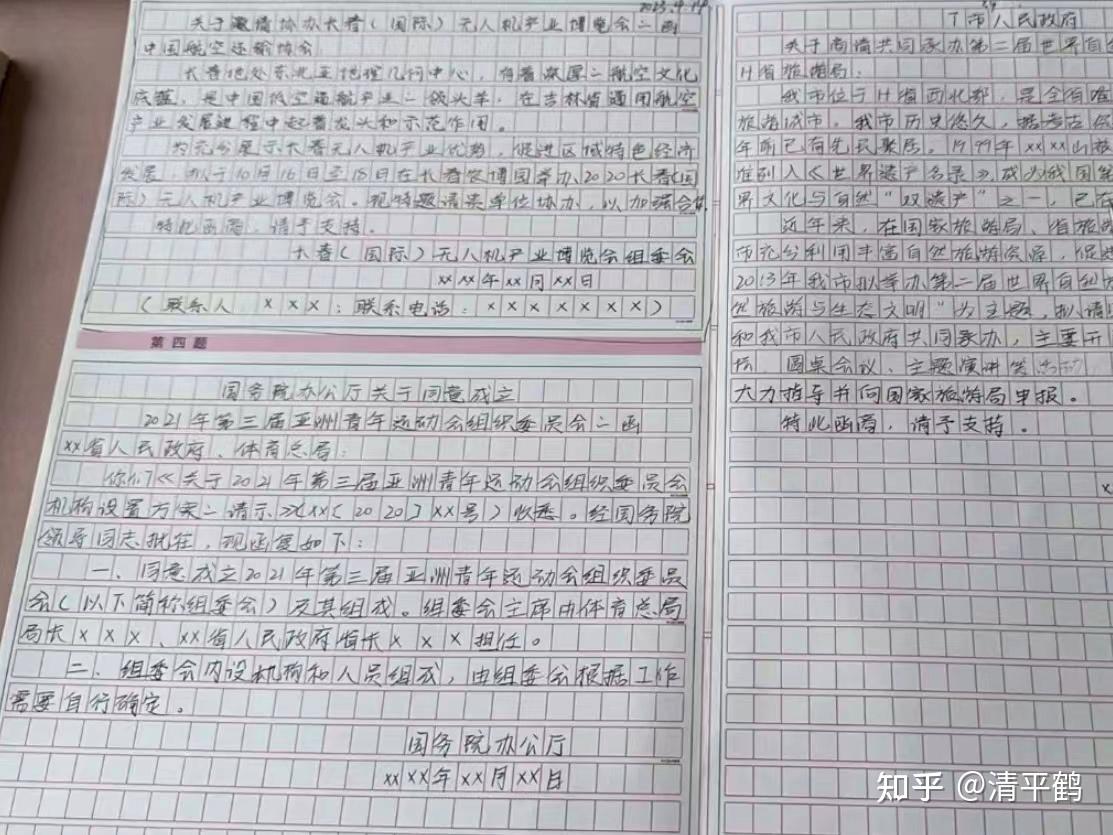 2023.9.14
关于邀请协办长春(国际)无人机产业博览会之函
中国航空运输协会
长春地处东北亚地理几何中心，有着深厚之航空文化
底蕴，是中国低空通航产业之领头羊，在吉林省通用航空
产业发展进程中起着龙头和示范作用。
为充分展示长春无人机产业优势，促进区域特色经济
发展，拟于10月16日至18日在长春农博园举办2020长春(国
际)无人机产业博览会。现特邀请贵单位协办，以加强合作
特此函商，请予支持。
长春(国际)无人机产业博览会组委会
xx年xx月xx日
(联系人 xxx；联系电话：xxxxxxxx)
第四题
国务院办公厅关于同意成立
2021年第三届亚洲青年运动会组织委员会之函
xx省人民政府、体育总局：
你们《关于2021年第三届亚洲青年运动会组织委员会
机构设置方案之请示》(xx〔2020〕xx号)收悉。经国务院
领导同志批准，现函复如下：
一、同意成立2021年第三届亚洲青年运动会组织委员
会(以下简称组委会)及其组成。组委会主席由体育总局
局长xxx、xx省人民政府省长xxx担任。
二、组委会内设机构和人员组成，由组委会根据工作
需要自行确定。
国务院办公厅
xxxx年xx月xx日
T市人民政府
关于商请共同承办第二届世界自
H省旅游局：
我市位于H省西北部，是全省唯
旅游城市。我市历史悠久，据考古
年前已有先民聚居。1999年xx山被
准列入《世界遗产名录》，成为我国第
界文化与自然"双遗产"之一，已
近年来，在国家旅游局、省旅游
市充分利用丰富自然旅游资源，促进
2013年我市拟举办第二届世界自然
然旅游与生态文明"为主题，拟请
和我市人民政府共同承办，主要开
坛、圆桌会议、主题演讲等活动
大力指导并向国家旅游局申报。
特此函商，请予支持。
x
知乎 @清平鹤